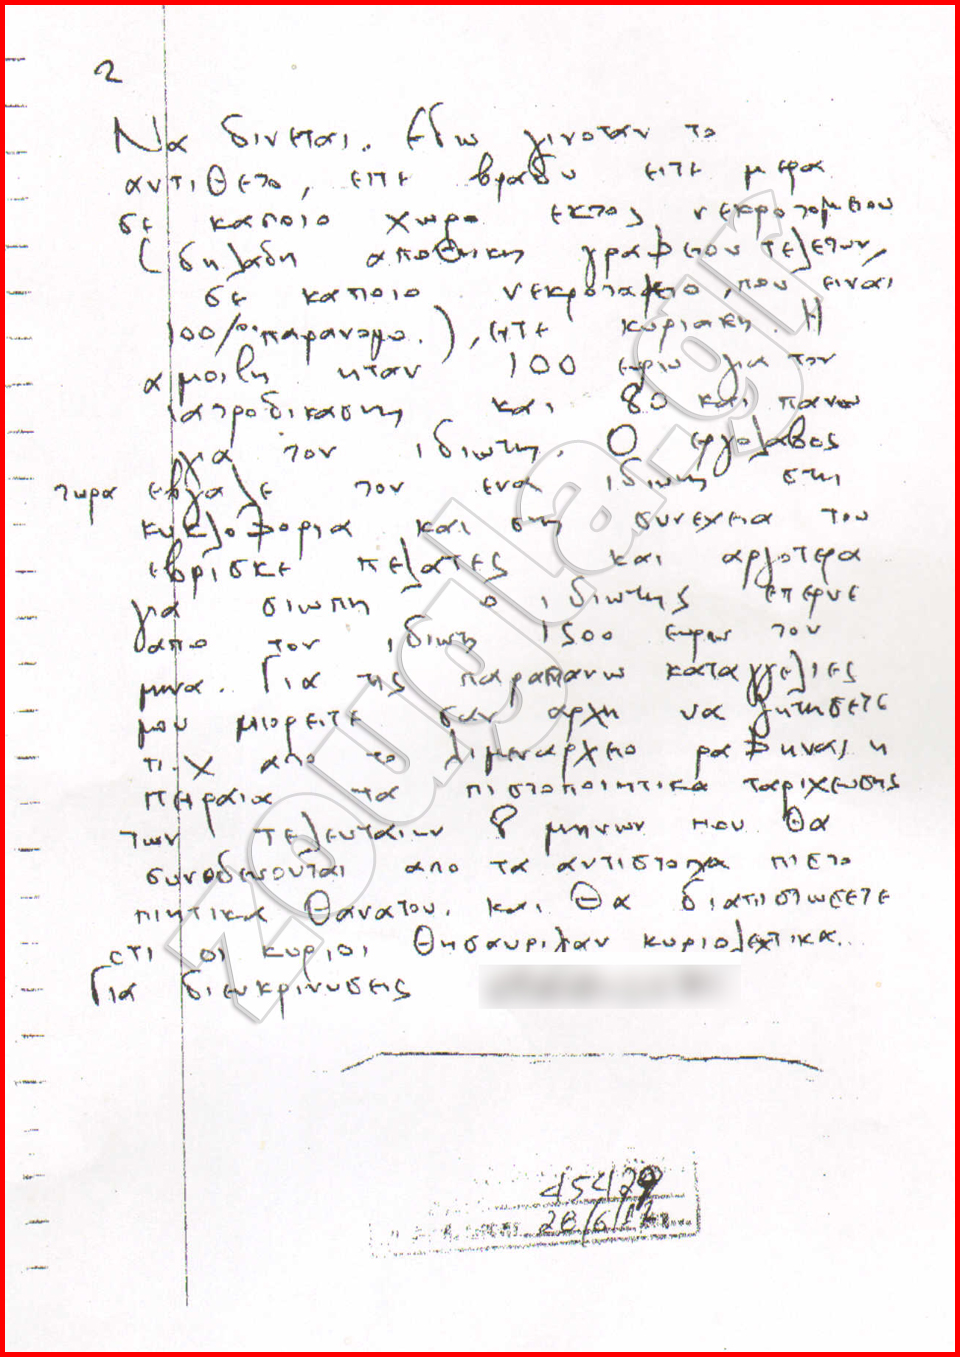 2
Να δινεται. Εδω γινοταν το
αντιθετο, ειτε βραδυ ειτε μερα
σε καποιο χωρο εκτος νεκροτομειου
(δηλαδη αποθηκη γραφειου τελετων,
σε καποιο νεκροταφειο, που ειναι
100/% παρανομο.), ειτε κυριακη. Η
αμοιβη ηταν 100 ευρω για τον
ιατροδικαστη και 80 και πανω
για τον ιδιωτη. Ο εργολαβος
τωρα εβγαλε τον ενα ιδιωτη στη
κυκλοφορια και στη συνεχεια του
εβρισκε πελατες και αργοτερα
για σιωπη ο ιδιωτης επερνε
απο τον ιδιωτη 1500 ευρω τον
μηνα. Για της παραπανω καταγγελιες
μου μπορειτε σαν αρχη να ζητησετε
π χ απο το λιμεναρχειο ραφηνας η
πειραια τα πιστοποιητικα ταριχευσης
των τελευταιων 8 μηνων που θα
συνοδευονται απο τα αντιστοιχα πιστο
πιητικα θανατου. και θα διαπιστωσετε
οτι οι κυριοι θησαυριζαν κυριολεχτικα..
Για διευκρινισεις
45429
28/6/11
zougla.gr